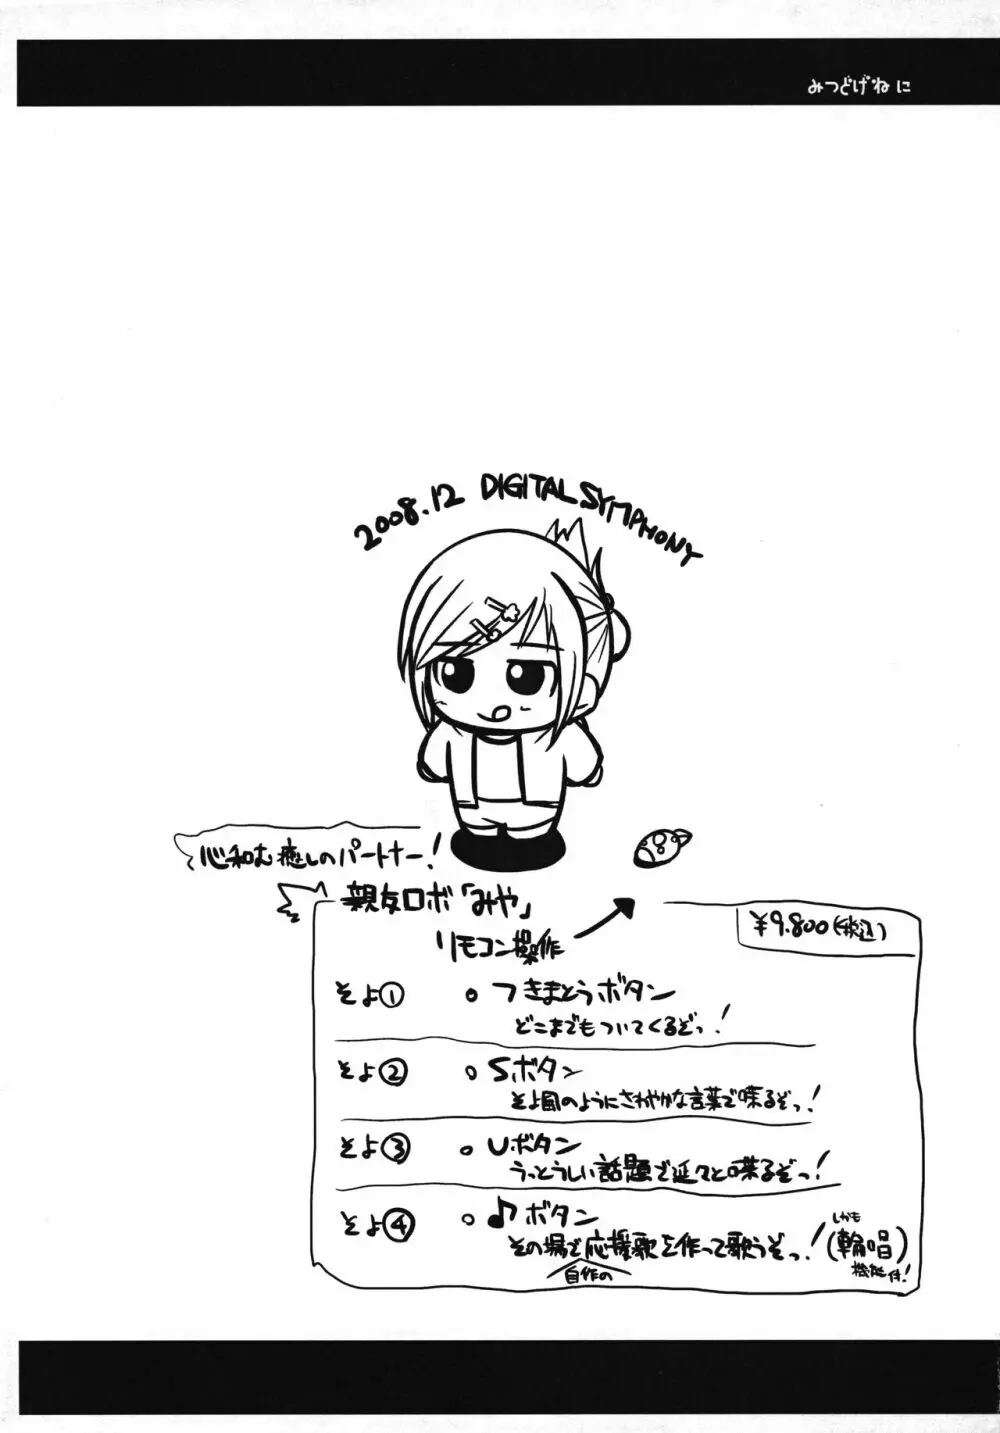 みつどげねに
2008.12 DIGITAL SYMPHONY
心和む癒しのパートナー!
親友ロボ「みや」
リモコン操作
¥9.800(税込)
そよ① ○つきまとうボタン
どこまでもついてくるぞっ!
そよ② ○Sボタン
そよ風のようにさわやかな言葉で喋るぞっ!
そよ③ ○Uボタン
うっとうしい話題で延々と喋るぞっ!
そよ④ ○♪ボタン
その場で応援歌を作って歌うぞっ!(輪唱)
自作の
しかも
機能付!